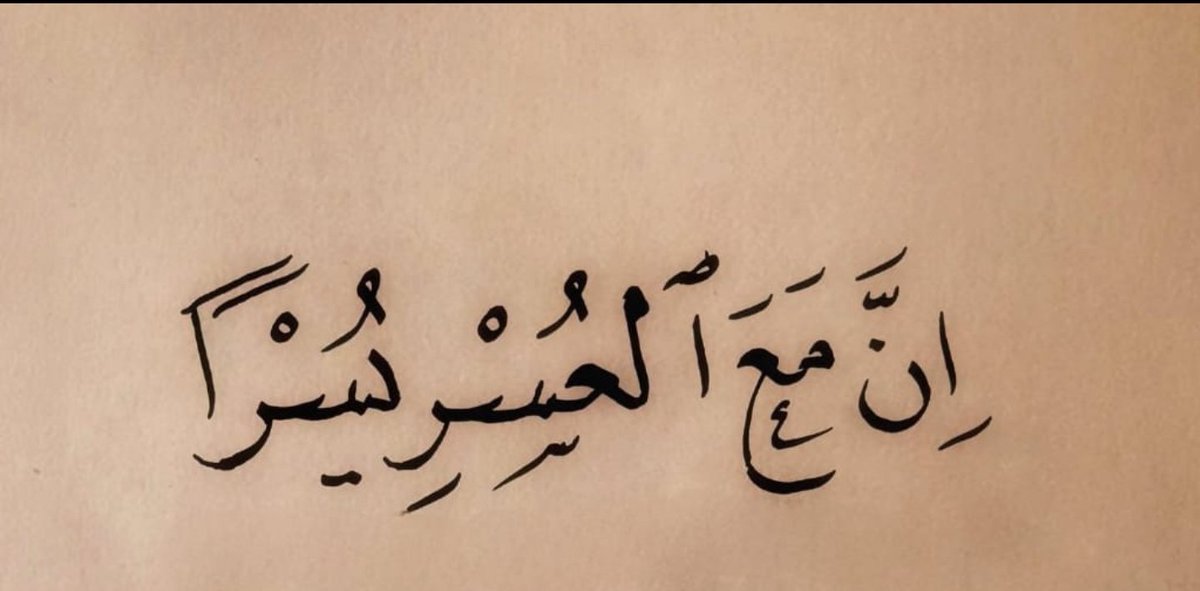 اِنَّ مَعَ ٱلعُسْرِ يُسْراً